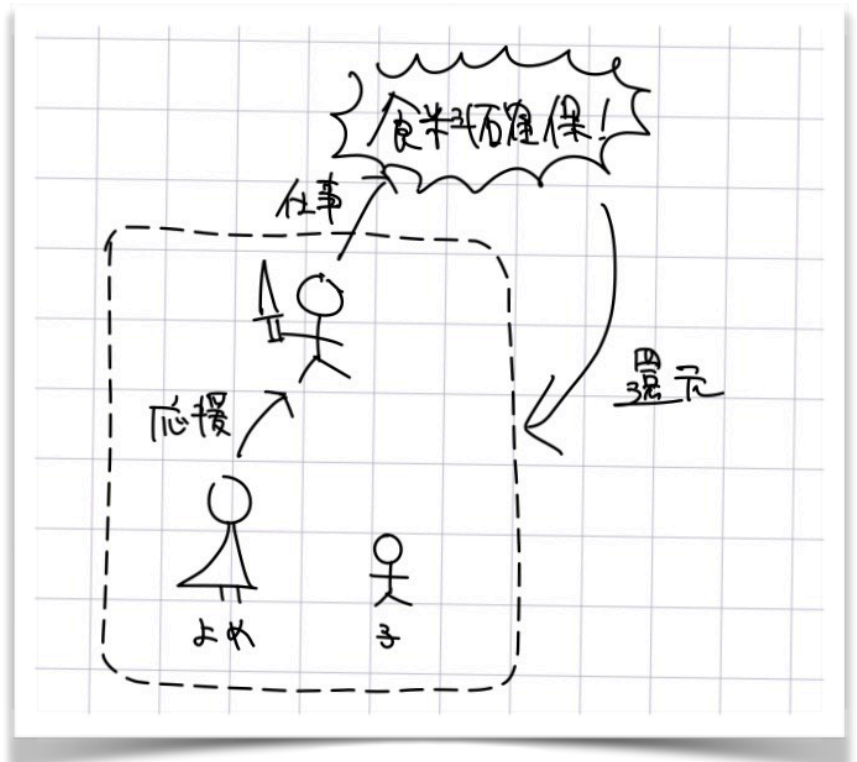 食料確保!
仕事
還元
応援
よめ
子